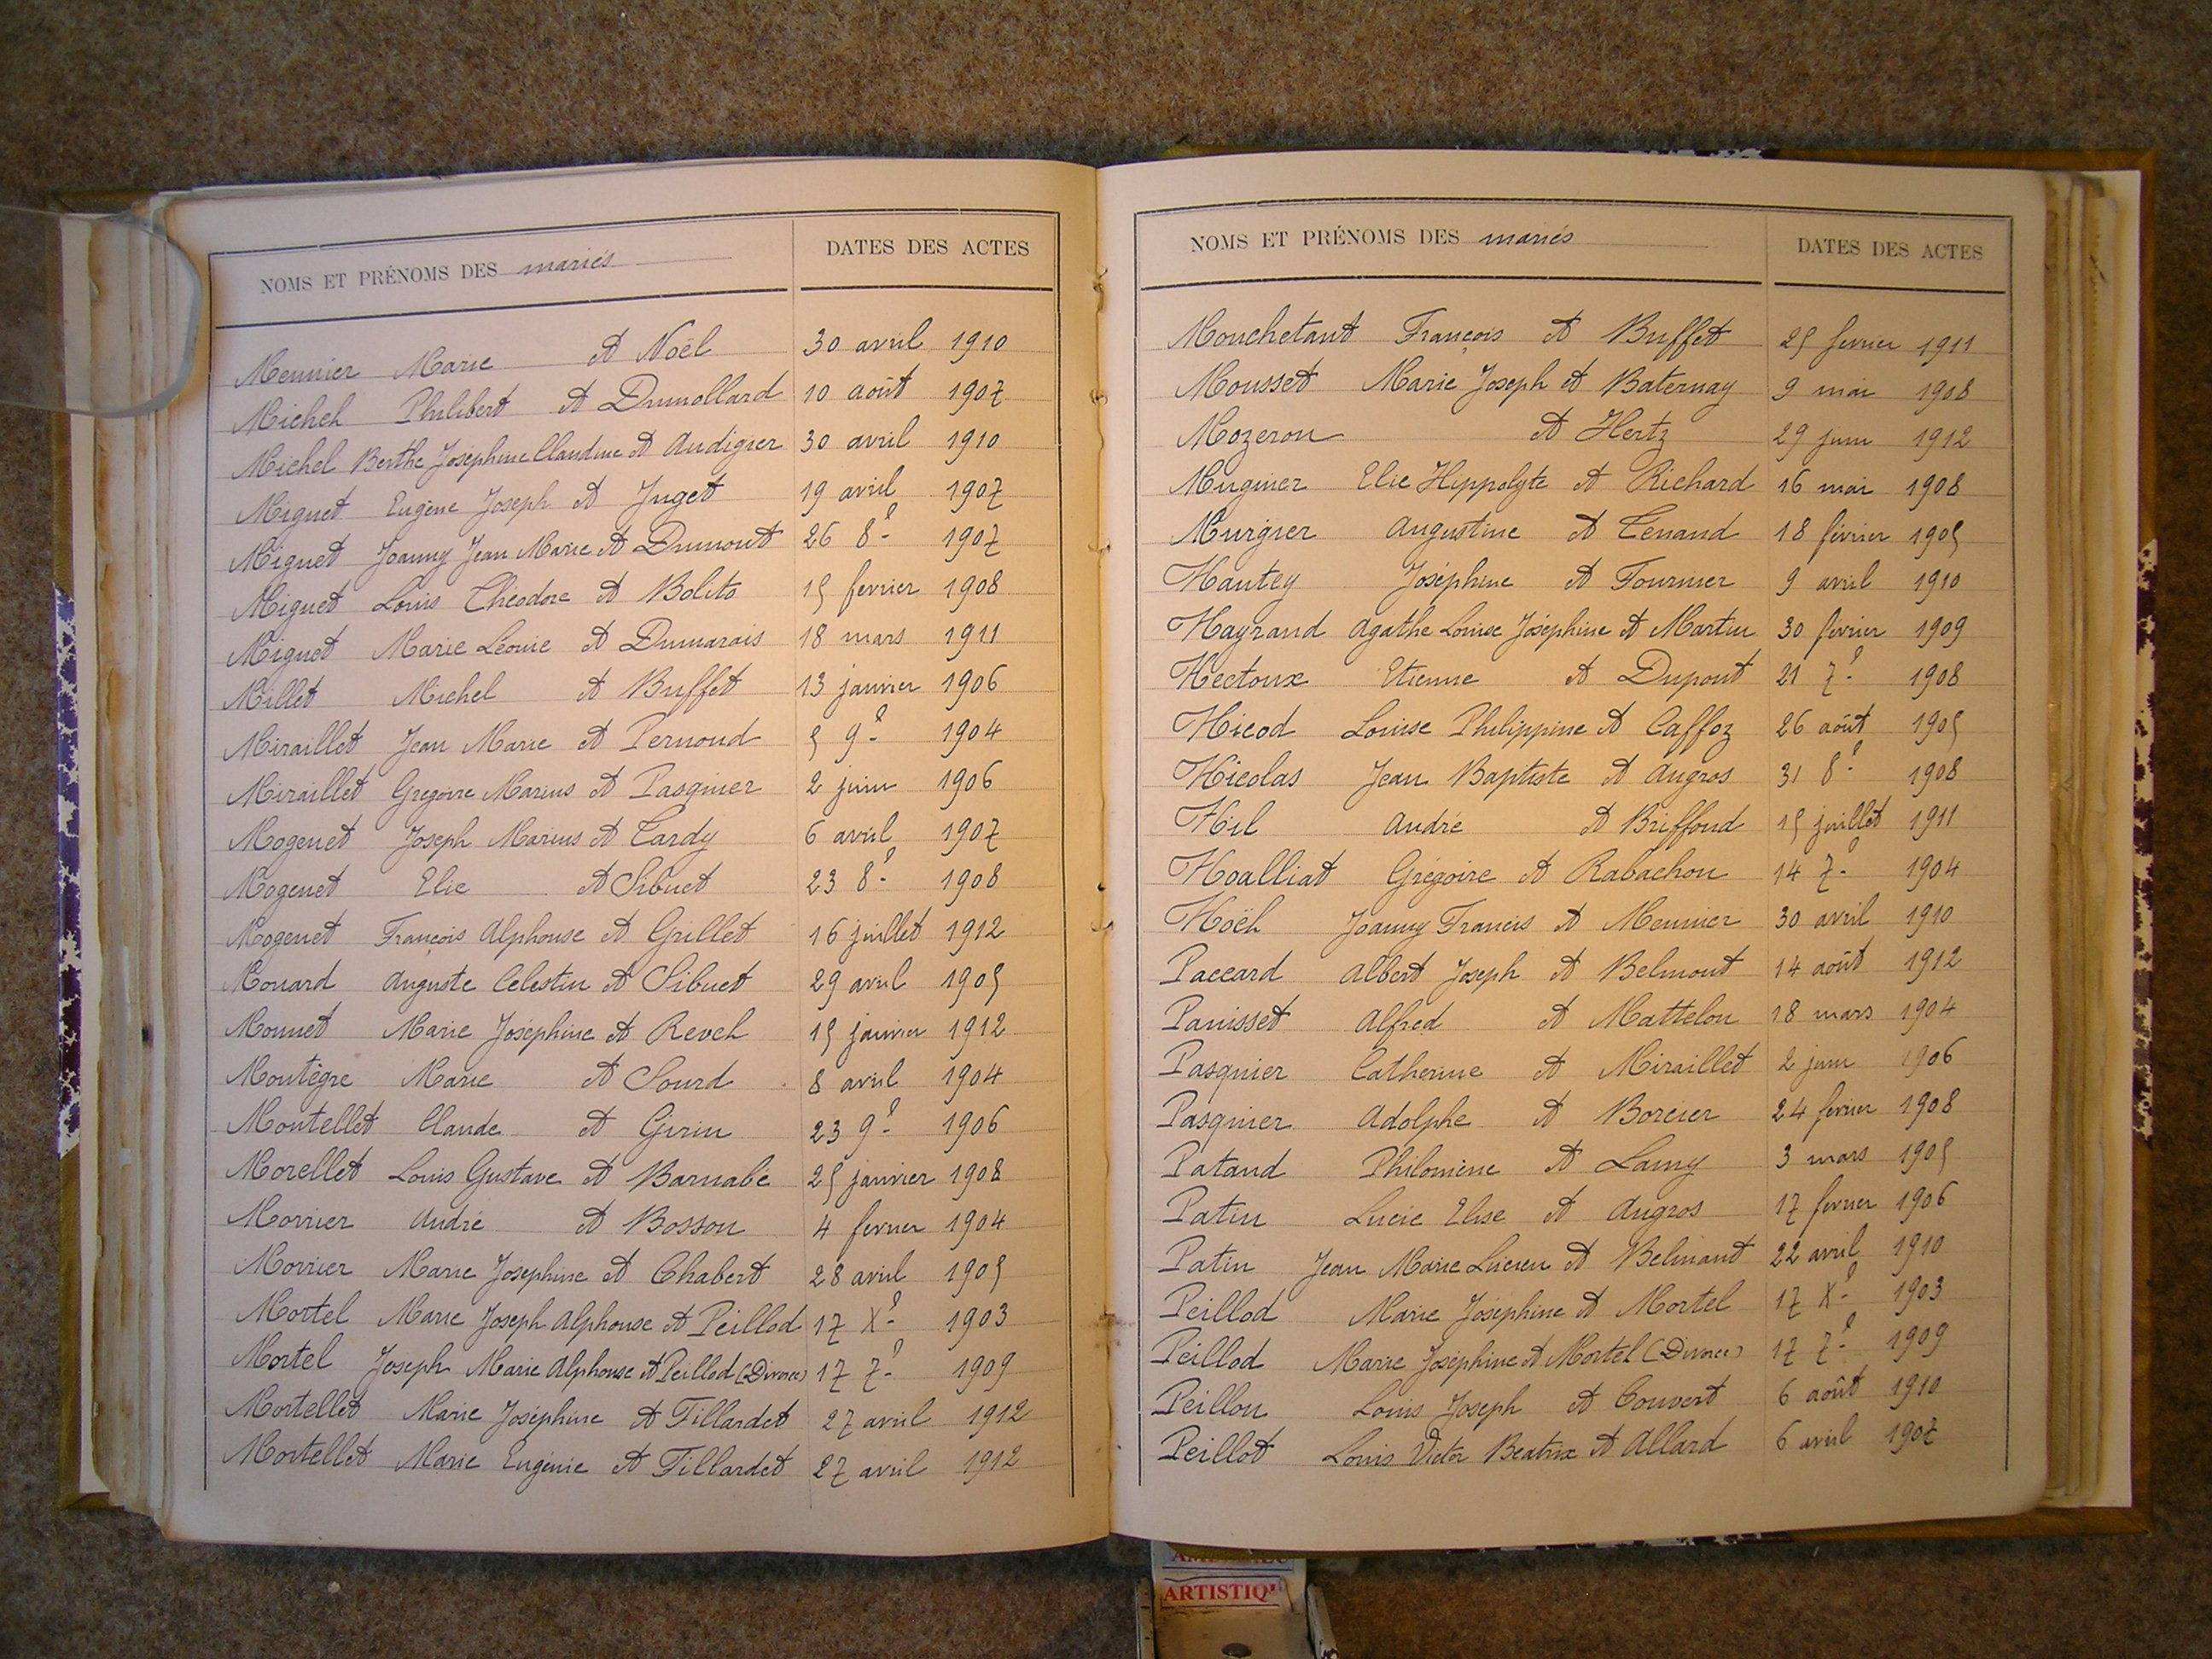 NOMS ET PRÉNOMS DES mariés DATES DES ACTES
Meunier Marie et Noël 30 avril 1910
Michel Philibert et Dumollard 10 août 1907
Michel Berthe Joséphine Claudine et Audigier 30 avril 1910
Miguet Eugène Joseph et Juget 19 avril 1907
Miguet Joanny Jean Marie et Dumont 26 8e 1907
Miguet Louis Théodore et Bolito 15 fevrier 1908
Miguet Marie Léonie et Dumarais 18 mars 1911
Millet Michel et Buffet 13 janvier 1906
Miraillet Jean Marie et Pernoud 5 9e 1904
Miraillet Grégoire Marius et Pasquier 2 juin 1906
Mogenet Joseph Marius et Tardy 6 avril 1907
Mogenet Elie et Sibuet 23 8e 1908
Mogenet François Alphonse et Grillet 16 juillet 1912
Monard Auguste Celestin et Sibuet 29 avril 1905
Monnet Marie Joséphine et Revel 15 janvier 1912
Montègre Marie et Sourd 8 avril 1904
Montellet Claude et Girin 23 9e 1906
Morellet Louis Gustave et Barnabé 25 janvier 1908
Morrier André et Bosson 4 fevrier 1904
Morrier Marie Joséphine et Chabert 28 avril 1905
Mortel Marie Joseph Alphonse et Peillod 17 Xe 1903
Mortel Joseph Marie Alphonse et Peillod (Divorce) 17 7e 1909
Mortellet Marie Joséphine et Tillardet 27 avril 1912
Mortellet Marie Eugénie et Tillardet 27 avril 1912
NOMS ET PRÉNOMS DES mariés DATES DES ACTES
Mouchetant François et Buffet 25 fevrier 1911
Mousset Marie Joseph et Baternay 9 mai 1908
Mozeron et Hertz 29 juin 1912
Mugnier Elie Hippolyte et Richard 16 mai 1908
Murgier Augustine et Tenand 18 février 1905
Nantey Joséphine et Fournier 9 avril 1910
Nayrand Agathe Louise Joséphine et Martin 30 février 1909
Nectoux Etienne et Dupont 21 7e 1908
Nicod Louise Philippine et Caffoz 26 août 1905
Nicolas Jean Baptiste et Augros 31 8e 1908
Nil André et Briffond 15 juillet 1911
Noalliat Grégoire et Rabachon 14 7e 1904
Noël Joanny Francis et Meunier 30 avril 1910
Paccard Albert Joseph et Belmont 14 août 1912
Panisset Alfred et Mattelon 18 mars 1904
Pasquier Catherine et Miraillet 2 juin 1906
Pasquier Adolphe et Borcier 24 fevrier 1908
Patand Philomène et Lamy 3 mars 1905
Patin Lucie Elise et Augros 17 fevrier 1906
Patin Jean Marie Lucien et Belinant 22 avril 1910
Peillod Marie Joséphine et Mortel 17 Xe 1903
Peillod Marie Joséphine et Mortel (Divorce) 17 7e 1909
Peillon Louis Joseph et Convert 6 août 1910
Peillot Louis Victor Beatrix et Allard 6 avril 1907
ARTISTIQ